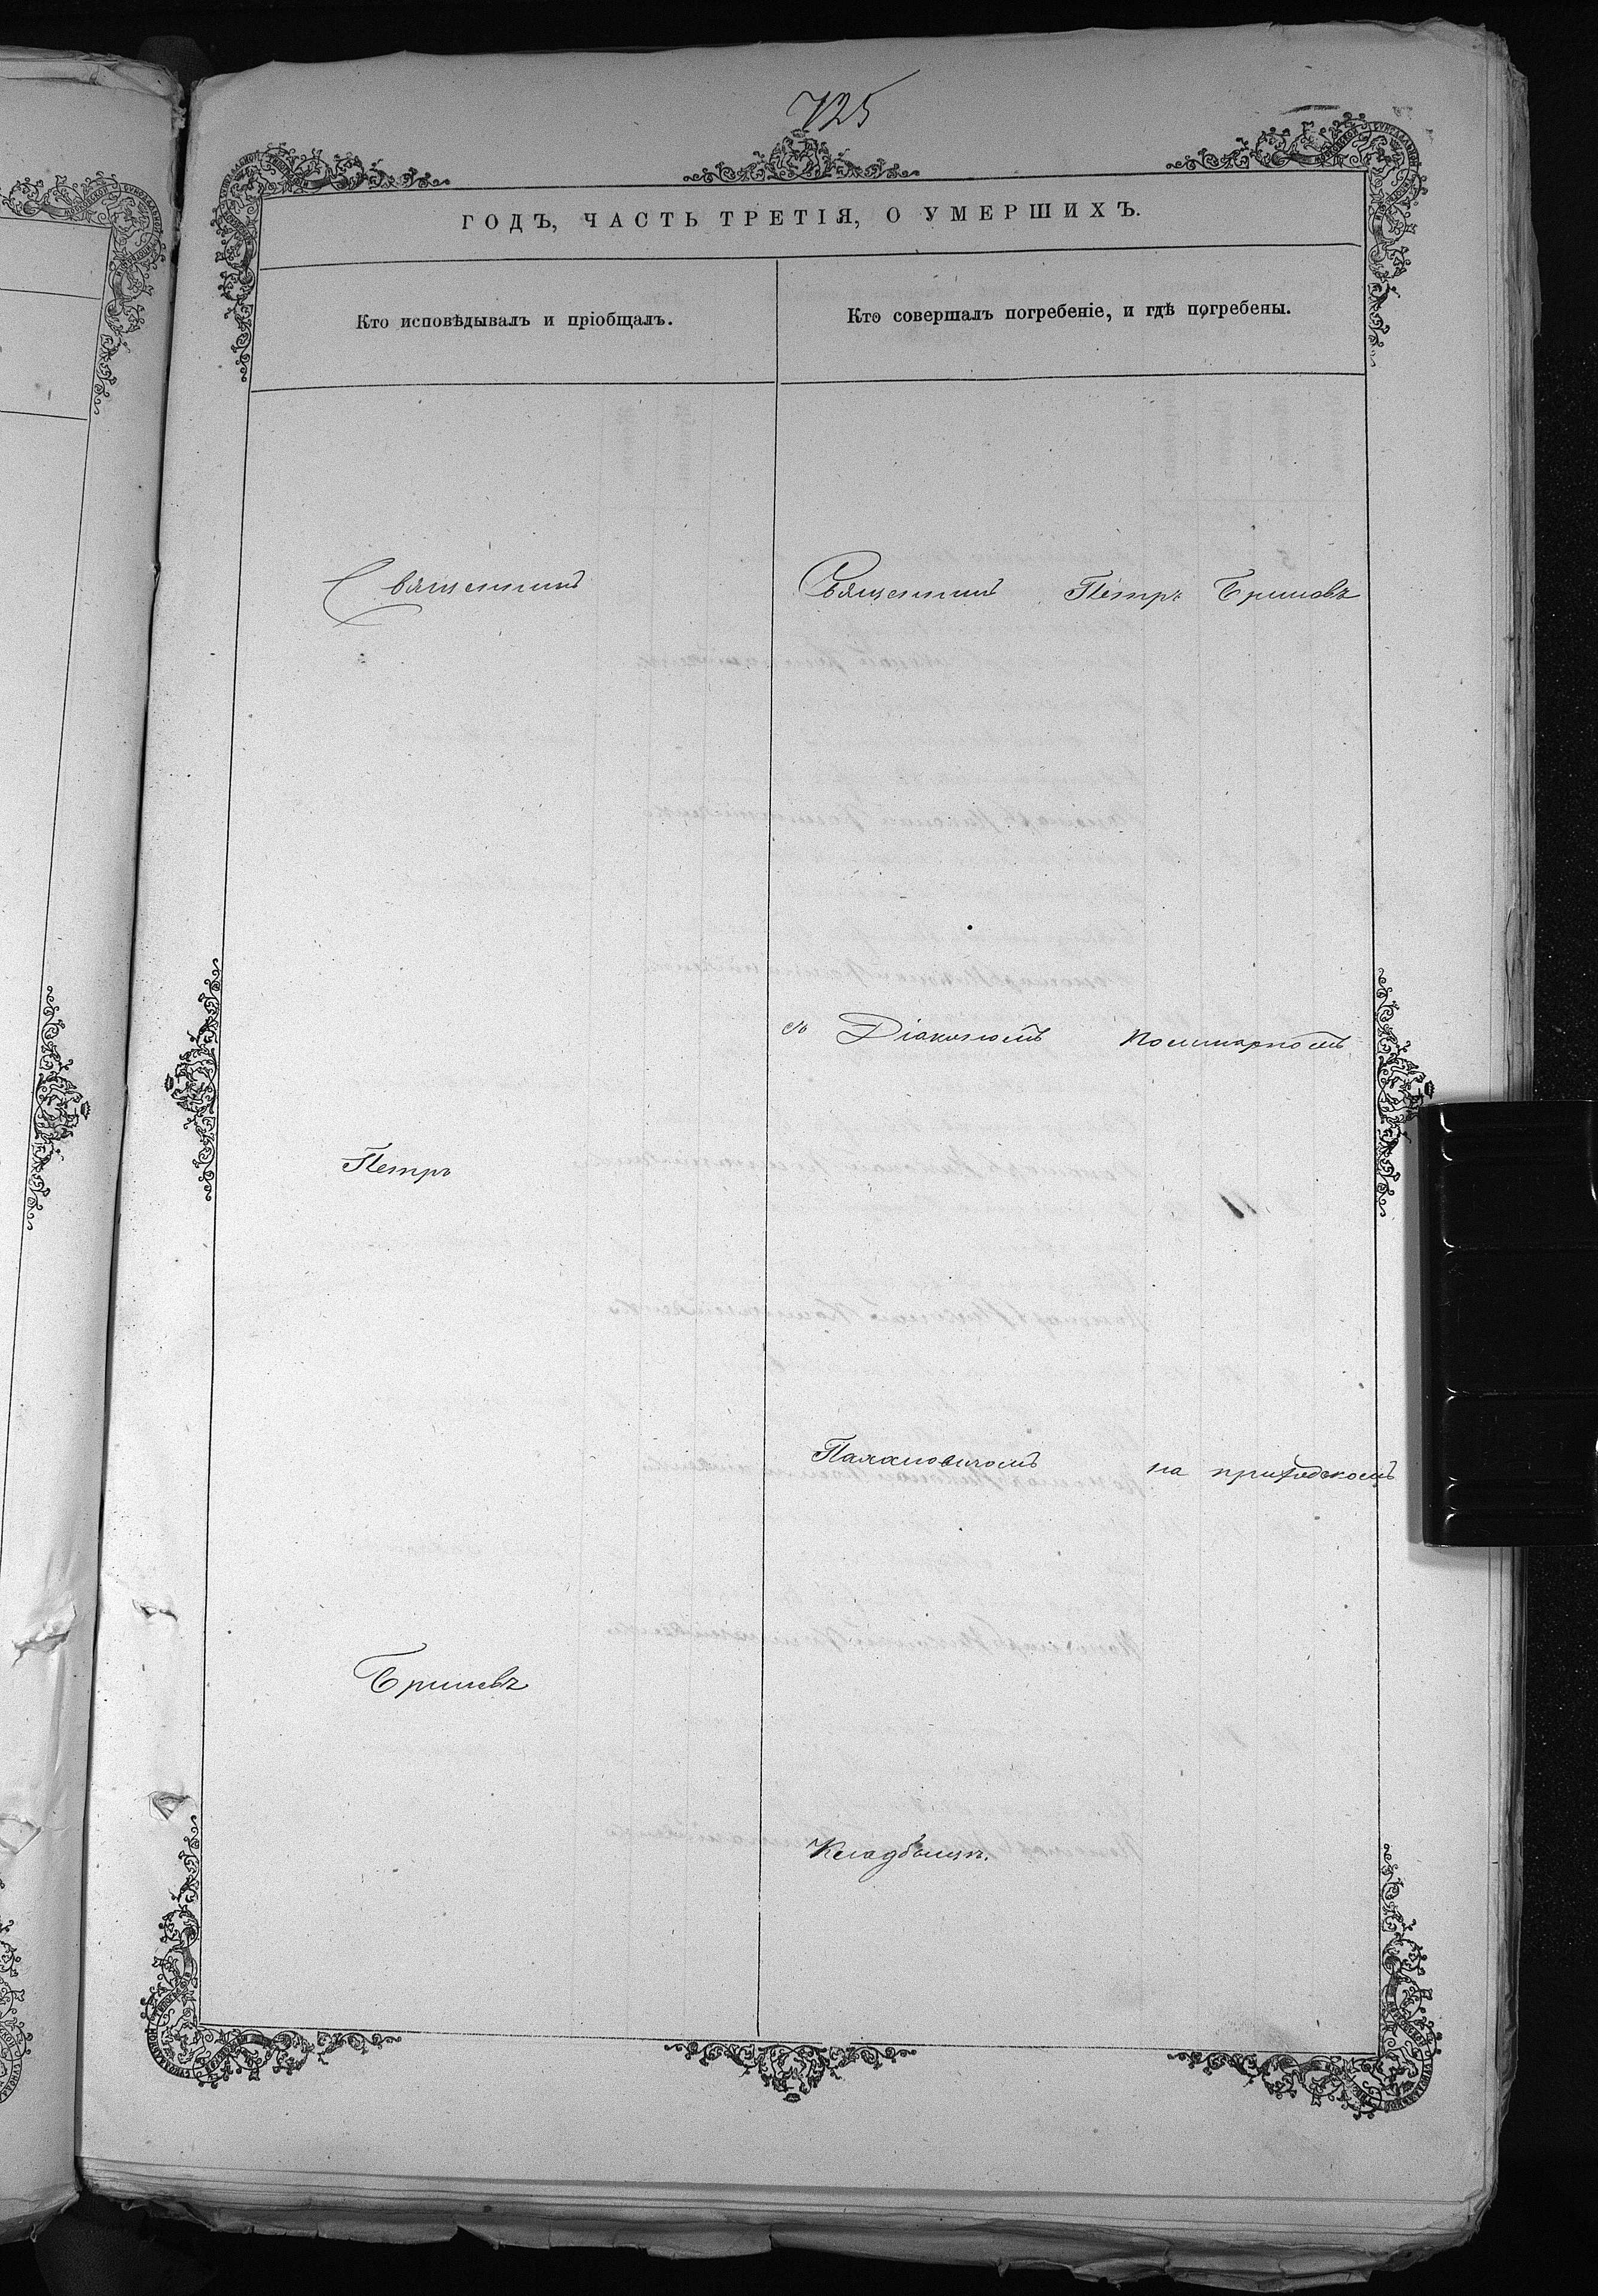 725
ГОДЪ, ЧАСТЬ ТРЕТІЯ, О УМЕРШИХЪ.
Кто исповѣдывалъ и пріобщалъ.
Кто совершалъ погребеніе, и гдѣ погребены.
Священникъ
Петръ
Священникъ Петръ
съ Діакономъ
на приходскомъ
Кладбищѣ.